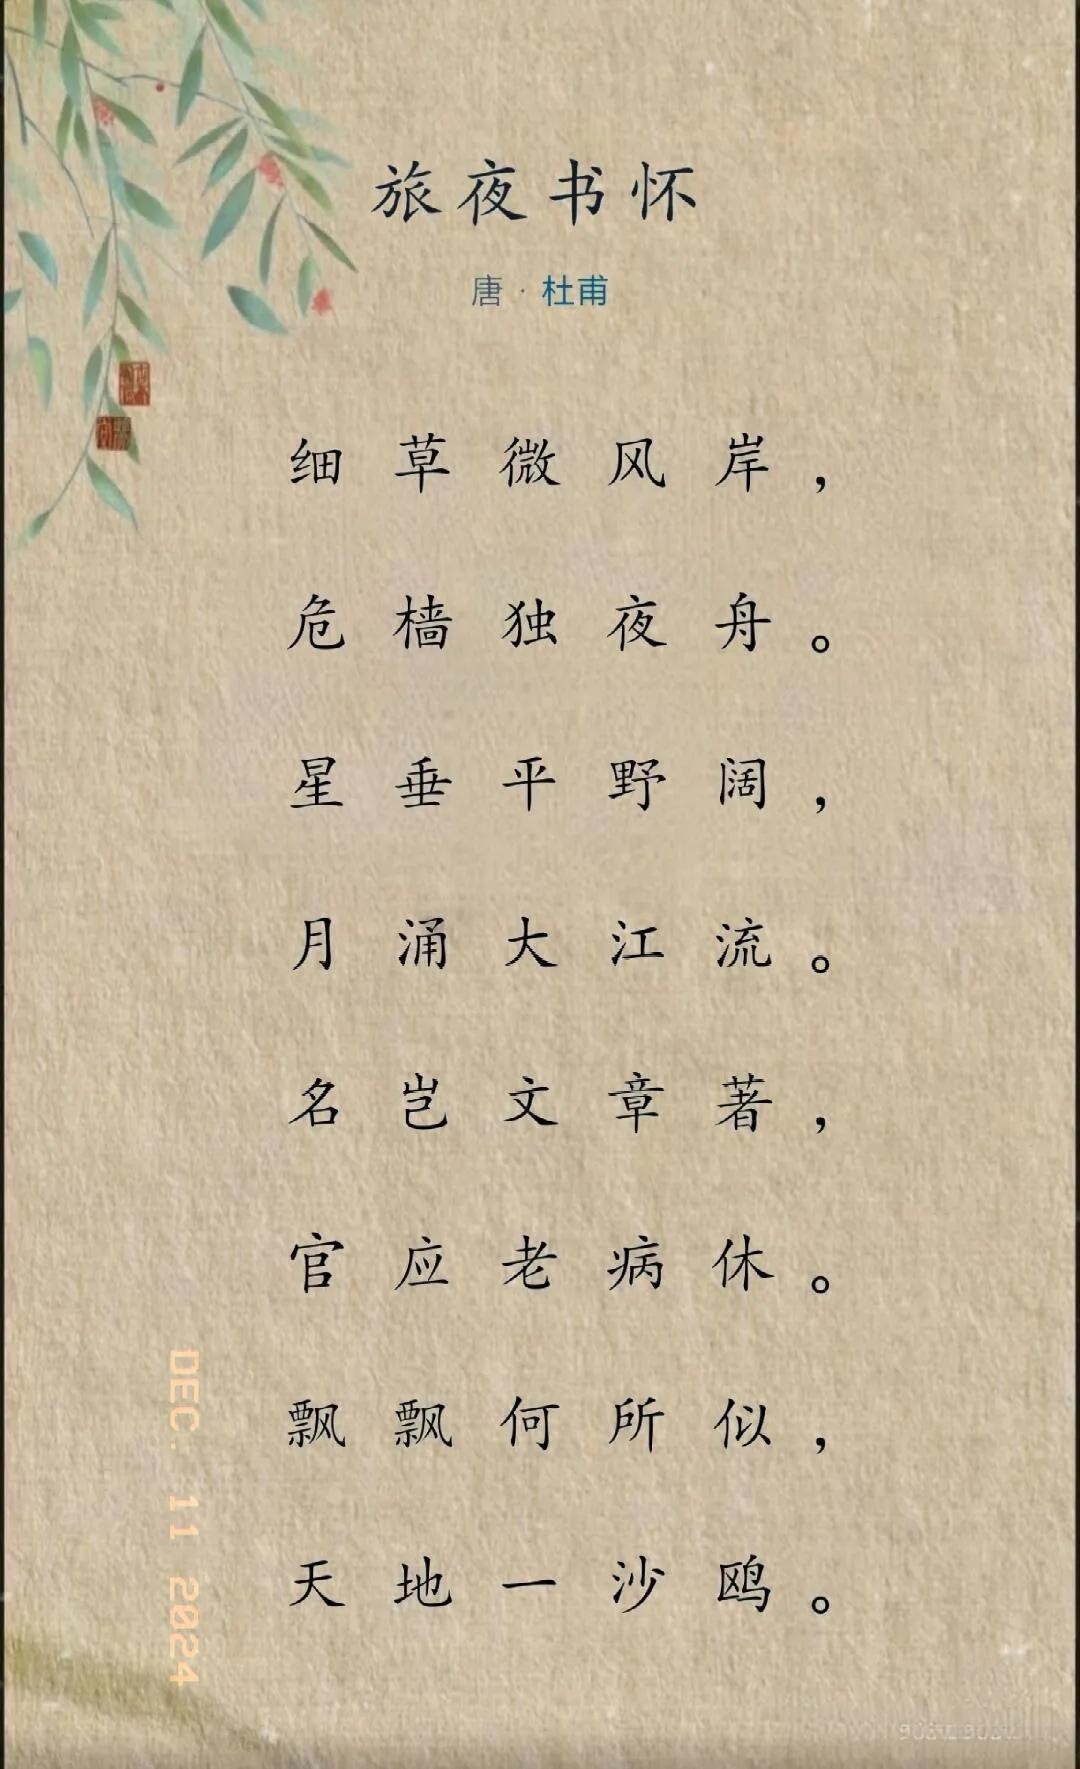 旅夜书怀
唐·杜甫
细草微风岸，
危樯独夜舟。
星垂平野阔，
月涌大江流。
名岂文章著，
官应老病休。
飘飘何所似，
天地一沙鸥。
DEC. 11 2024